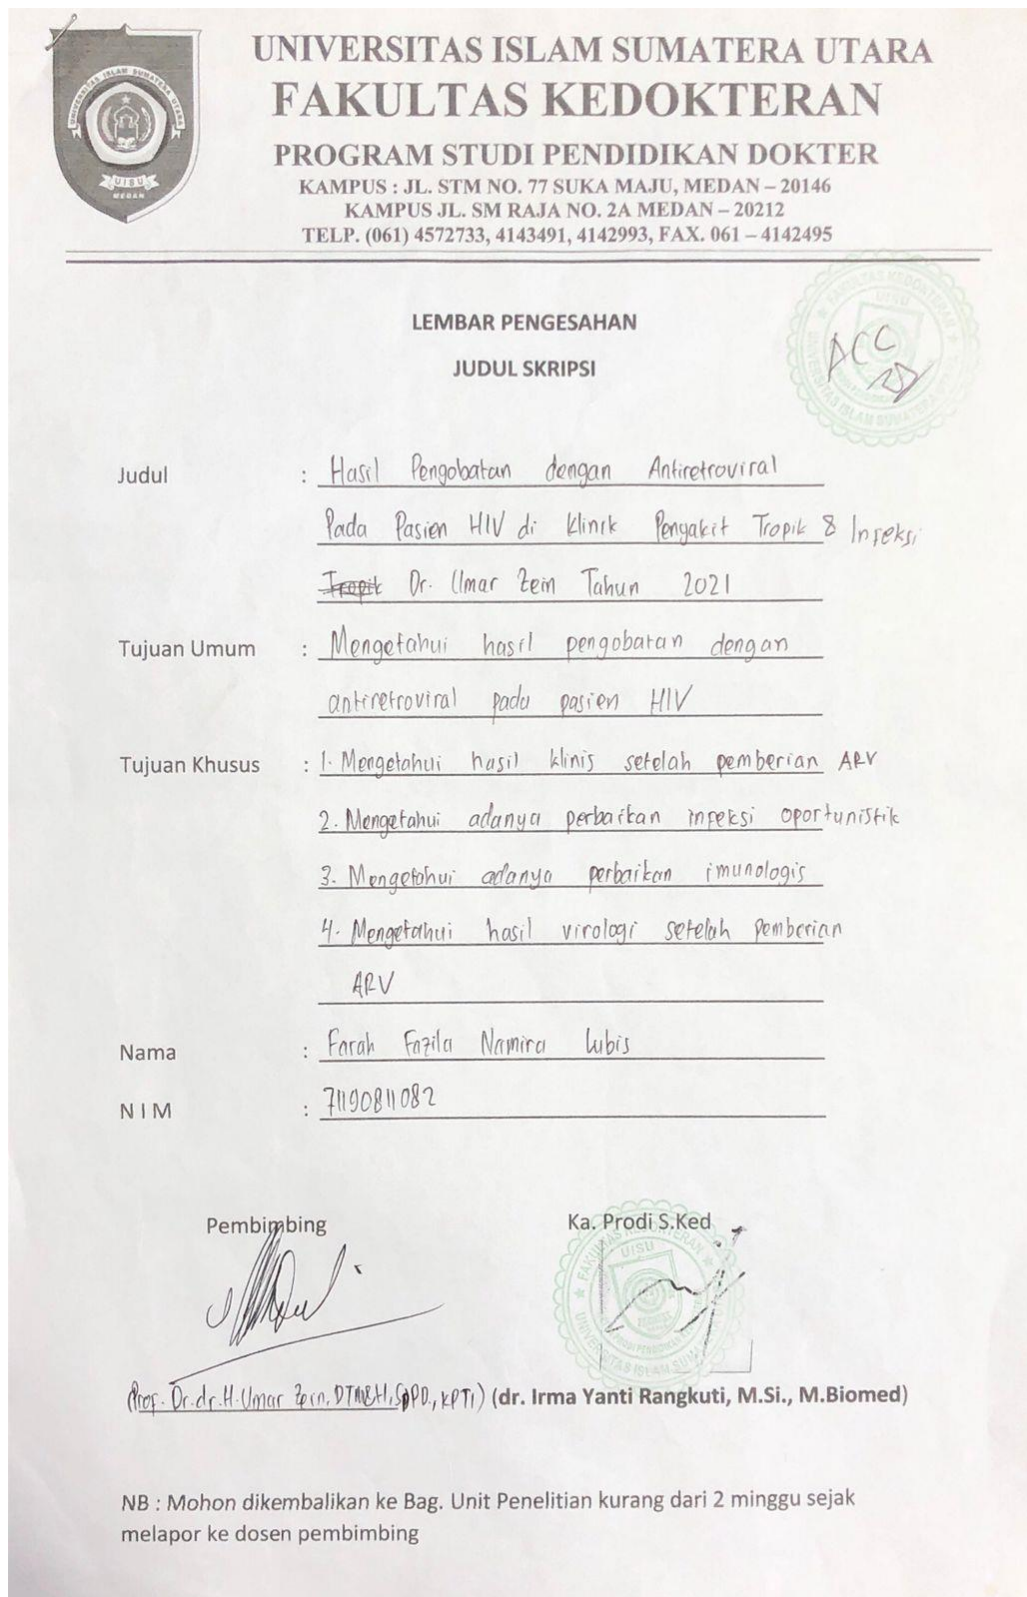 UNIVERSITAS ISLAM SUMATERA UTARA
FAKULTAS KEDOKTERAN
PROGRAM STUDI PENDIDIKAN DOKTER
KAMPUS : JL. STM NO. 77 SUKA MAJU, MEDAN – 20146
KAMPUS JL. SM RAJA NO. 2A MEDAN – 20212
TELP. (061) 4572733, 4143491, 4142993, FAX. 061 – 4142495
UNIVERSITAS ISLAM SUMATERA UTARA
UISU
MEDAN
LEMBAR PENGESAHAN
JUDUL SKRIPSI
FAKULTAS KEDOKTERAN
UISU
UNIVERSITAS ISLAM SUMATERA UTARA
ACC
Judul : Hasil Pengobatan dengan Antiretroviral
Pada Pasien HIV di Klinik Penyakit Tropik & Infeksi
Tropik Dr. Umar Zein Tahun 2021
Tujuan Umum : Mengetahui hasil pengobatan dengan
antiretroviral pada pasien HIV
Tujuan Khusus : 1. Mengetahui hasil klinis setelah pemberian ARV
2. Mengetahui adanya perbaikan infeksi oportunistik
3. Mengetahui adanya perbaikan imunologis
4. Mengetahui hasil virologi setelah pemberian
ARV
Nama : Farah Fazila Namira Lubis
NIM : 71190811082
Pembimbing Ka. Prodi S.Ked
FAKULTAS KEDOKTERAN
UISU
UNIVERSITAS ISLAM SUMATERA
(Prof. Dr. dr. H. Umar Zein, DTM&H, SpPD., KPTI) (dr. Irma Yanti Rangkuti, M.Si., M.Biomed)
NB : Mohon dikembalikan ke Bag. Unit Penelitian kurang dari 2 minggu sejak
melapor ke dosen pembimbing